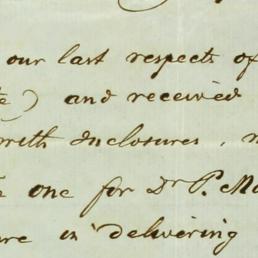 our last respects of
) and received
with Inclosures,
one for Dr P. Ma
in delivering